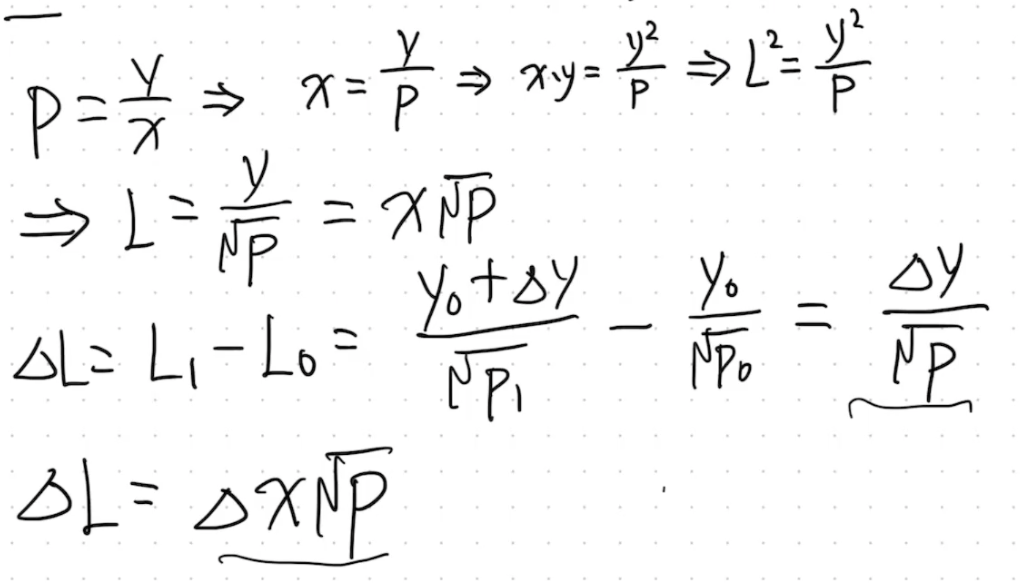 P = y/x ⇒ x = y/P ⇒ x·y = y²/P ⇒ L² = y²/P
⇒ L = y/√P = x√P
ΔL = L₁ − L₀ = (y₀ + Δy)/√P₁ − y₀/√P₀ = Δy/√P
ΔL = Δx√P